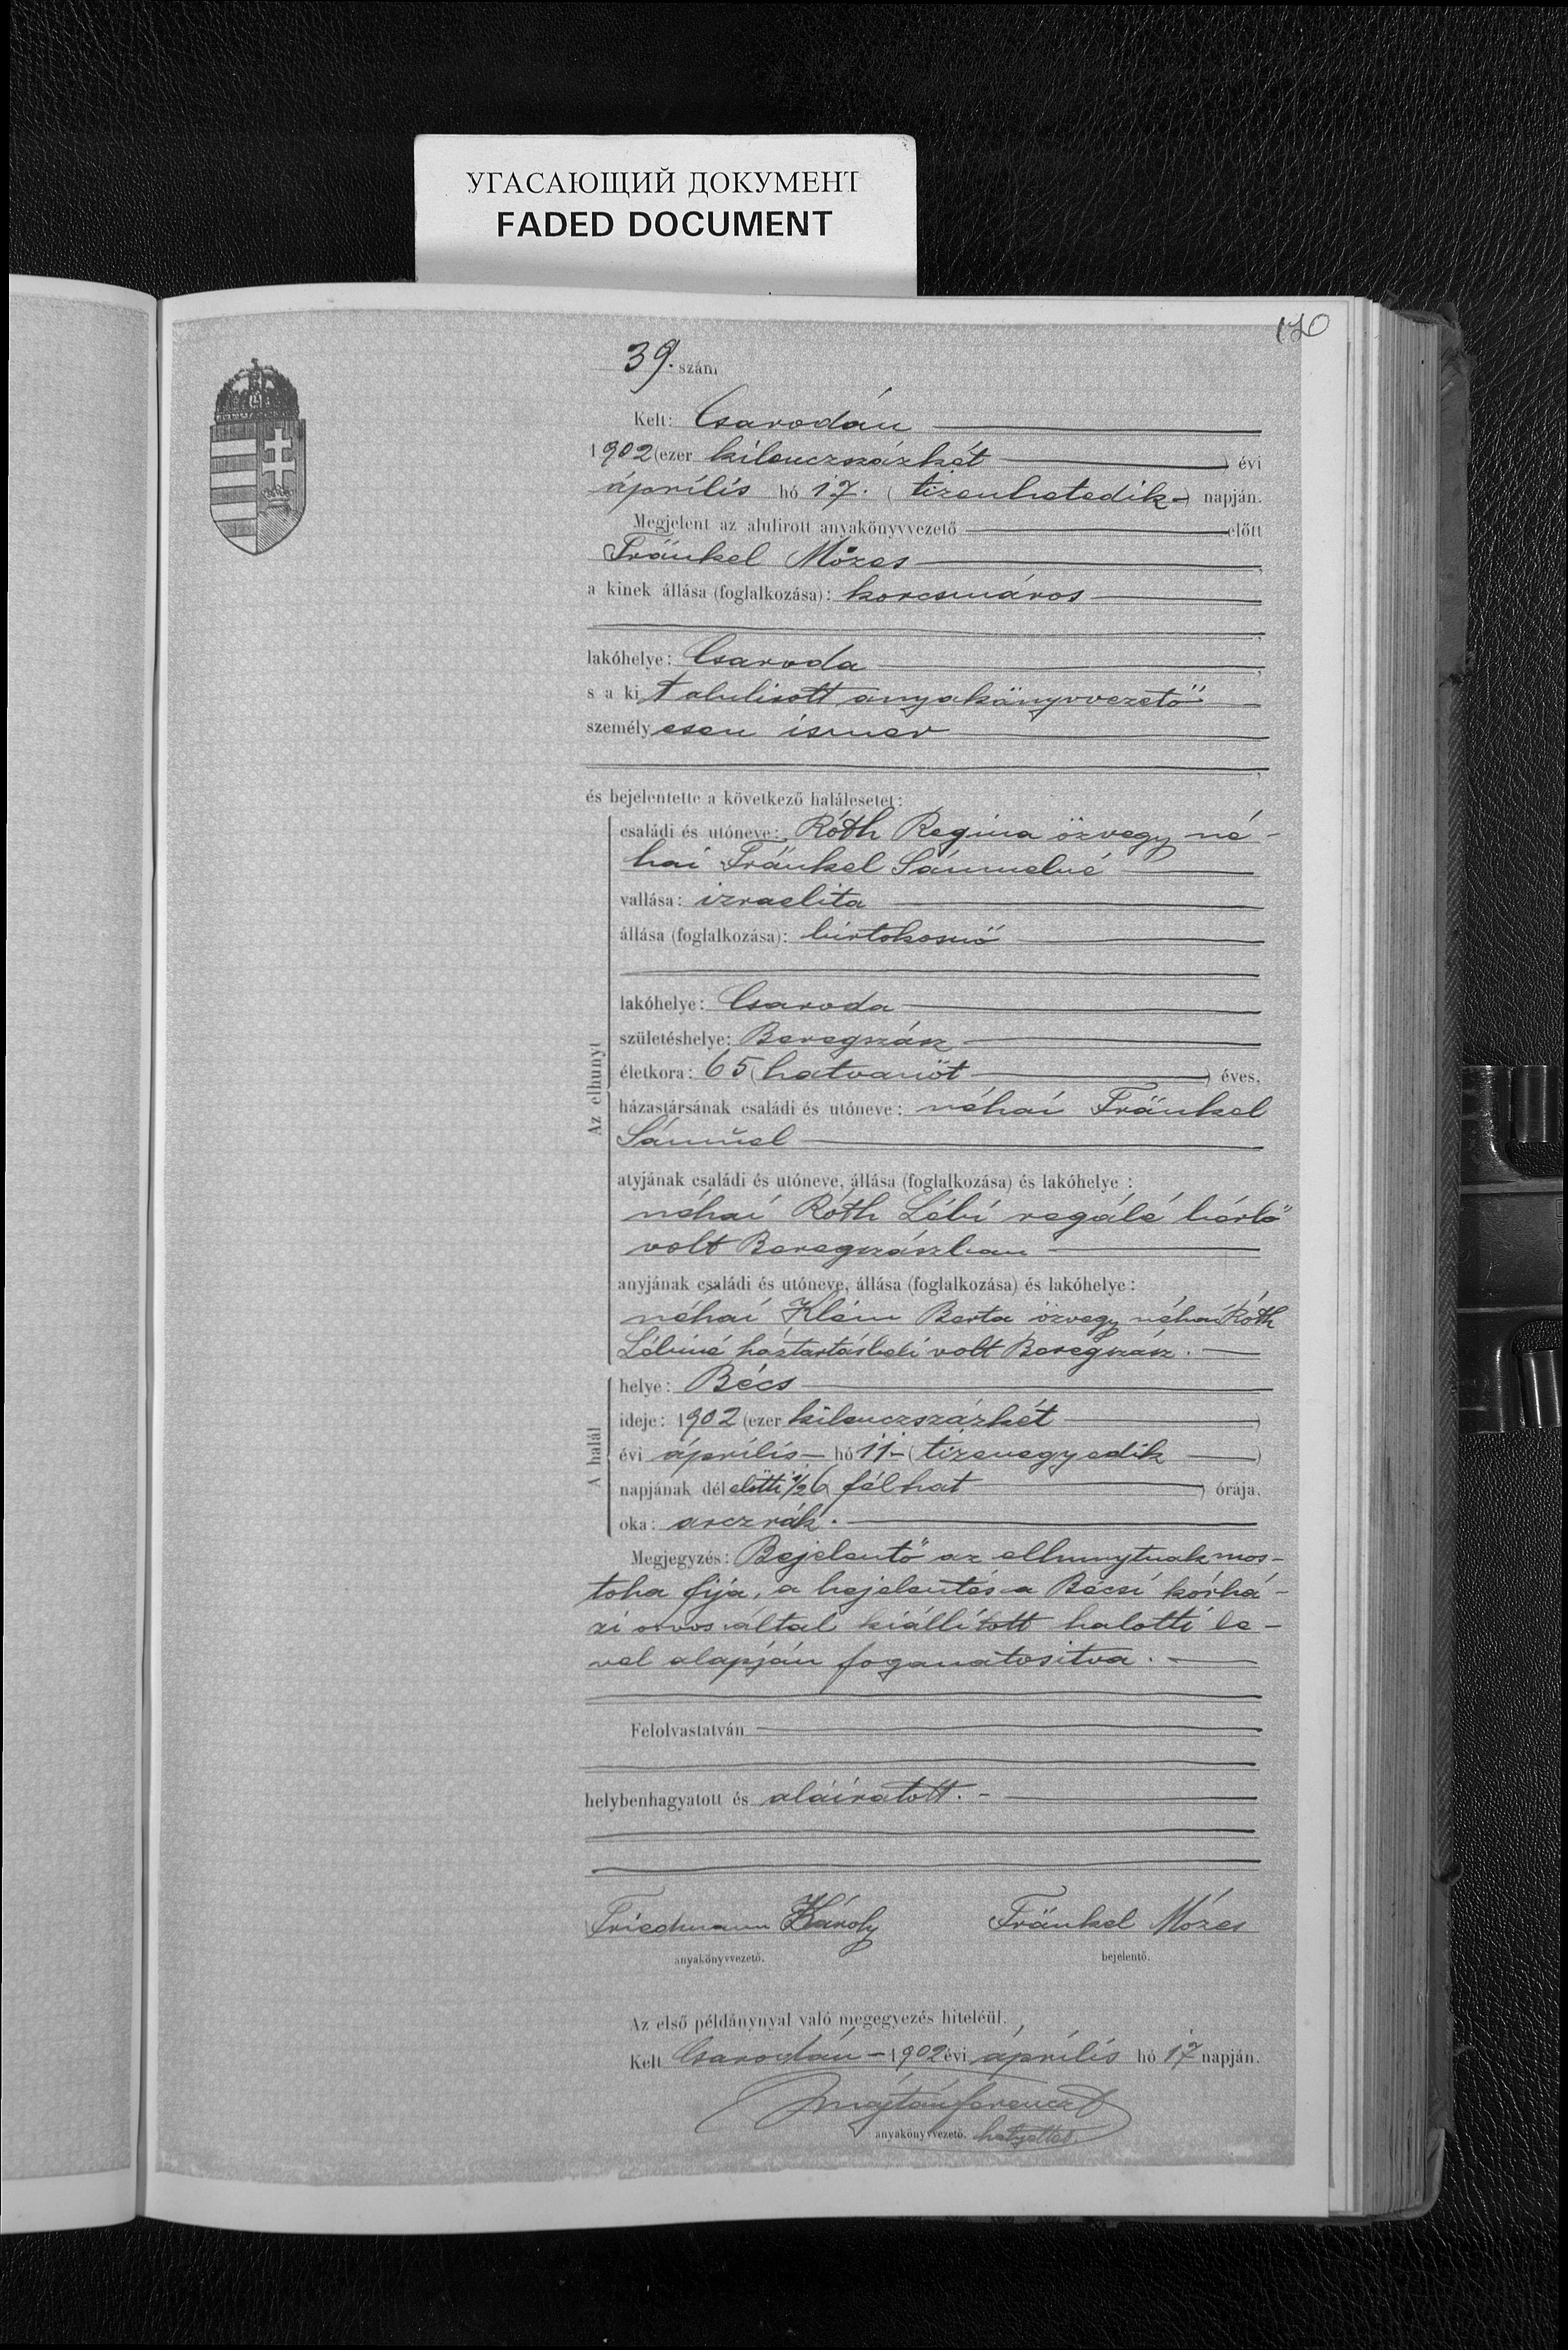 УГАСАЮЩИЙ ДОКУМЕНТ
FADED DOCUMENT
170
39. szám
Kelt: Csarodán
1902 (ezer kilenczszázkét) évi
április hó 17. (tizenhetedik) napján.
Megjelent az alulirott anyakönyvvezető előtt
Fränkel Mózes,
a kinek állása (foglalkozása): korcsmáros
lakóhelye: Csaroda,
s a kit alulirott anyakönyvvezető
személyesen ismer
és bejelentette a következő halálesetet:
Az elhunyt
családi és utóneve: Róth Regina özvegy né-
hai Fränkel Sámuelné
vallása: izraelita
állása (foglalkozása): birtokosnő
lakóhelye: Csaroda
születéshelye: Beregszász
életkora: 65 (hatvanöt) éves,
házastársának családi és utóneve: néhai Fränkel
Sámuel
atyjának családi és utóneve, állása (foglalkozása) és lakóhelye:
néhai Róth Lébi regálé bérlő
volt Beregszászban
anyjának családi és utóneve, állása (foglalkozása) és lakóhelye:
néhai Klein Berta özvegy néhai Róth
Lébiné háztartásbeli volt Beregszász.
A halál
helye: Bécs
ideje: 1902 (ezer kilenczszázkét)
évi április hó 11 (tizenegyedik)
napjának dél előtti 1/2 6 (félhat) órája.
oka: arczrák.
Megjegyzés: Bejelentő az elhunytnak mos-
toha fija, a bejelentés a Bécsi kórhá-
zi orvos által kiállított halotti le-
vel alapján foganatositva.
Felolvastatván
helybenhagyatott és aláiratott.
Friedmann Károly Fränkel Mózes
anyakönyvvezető. bejelentő.
Az első példánynyal való megegyezés hiteléül.
Kelt Csarodán 1902 évi április hó 17 napján.
Ferencz
anyakönyvvezető. helyettes.